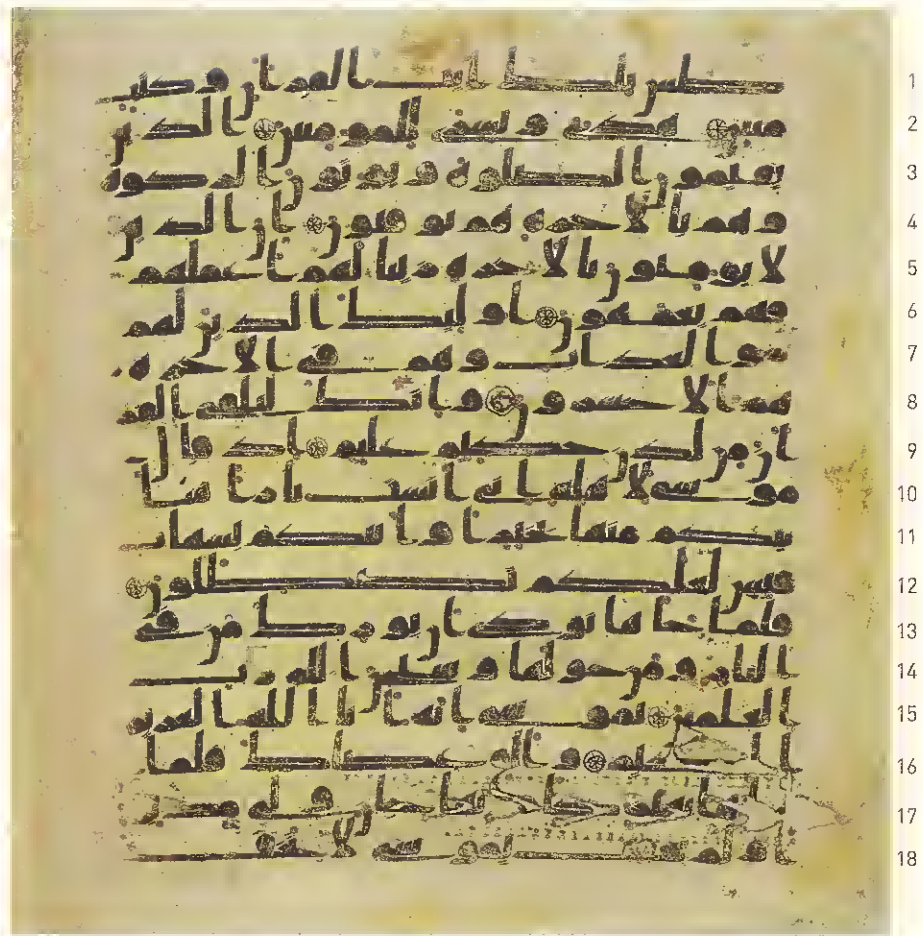 طس تلك ايت القران وكتب 1
مبين هدى وبشرى للمومنين الذين 2
يقيمون الصلوة ويوتون الزكوة 3
وهم بالاخرة هم يوقنون ان الذين 4
لا يومنون بالاخرة زينا لهم اعملهم 5
فهم يعمهون اوليك الذين لهم 6
سو العذاب وهم في الاخرة 7
هم الاخسرون وانك لتلقى القر 8
ان من لدن حكيم عليم اذ قال 9
موسى لاهله اني انست نارا سا 10
تيكم منها بخبر او اتيكم بشهاب 11
قبس لعلكم تصطلون 12
فلما جاها نودي ان بورك من في 13
النار ومن حولها وسبحن الله رب 14
العلمين يموسى انه انا الله العزيز 15
الحكيم والق عصاك فلما 16
راها تهتز كانها جان ولى مدبر 17
ا ولم يعقب يموسى لا تخف 18